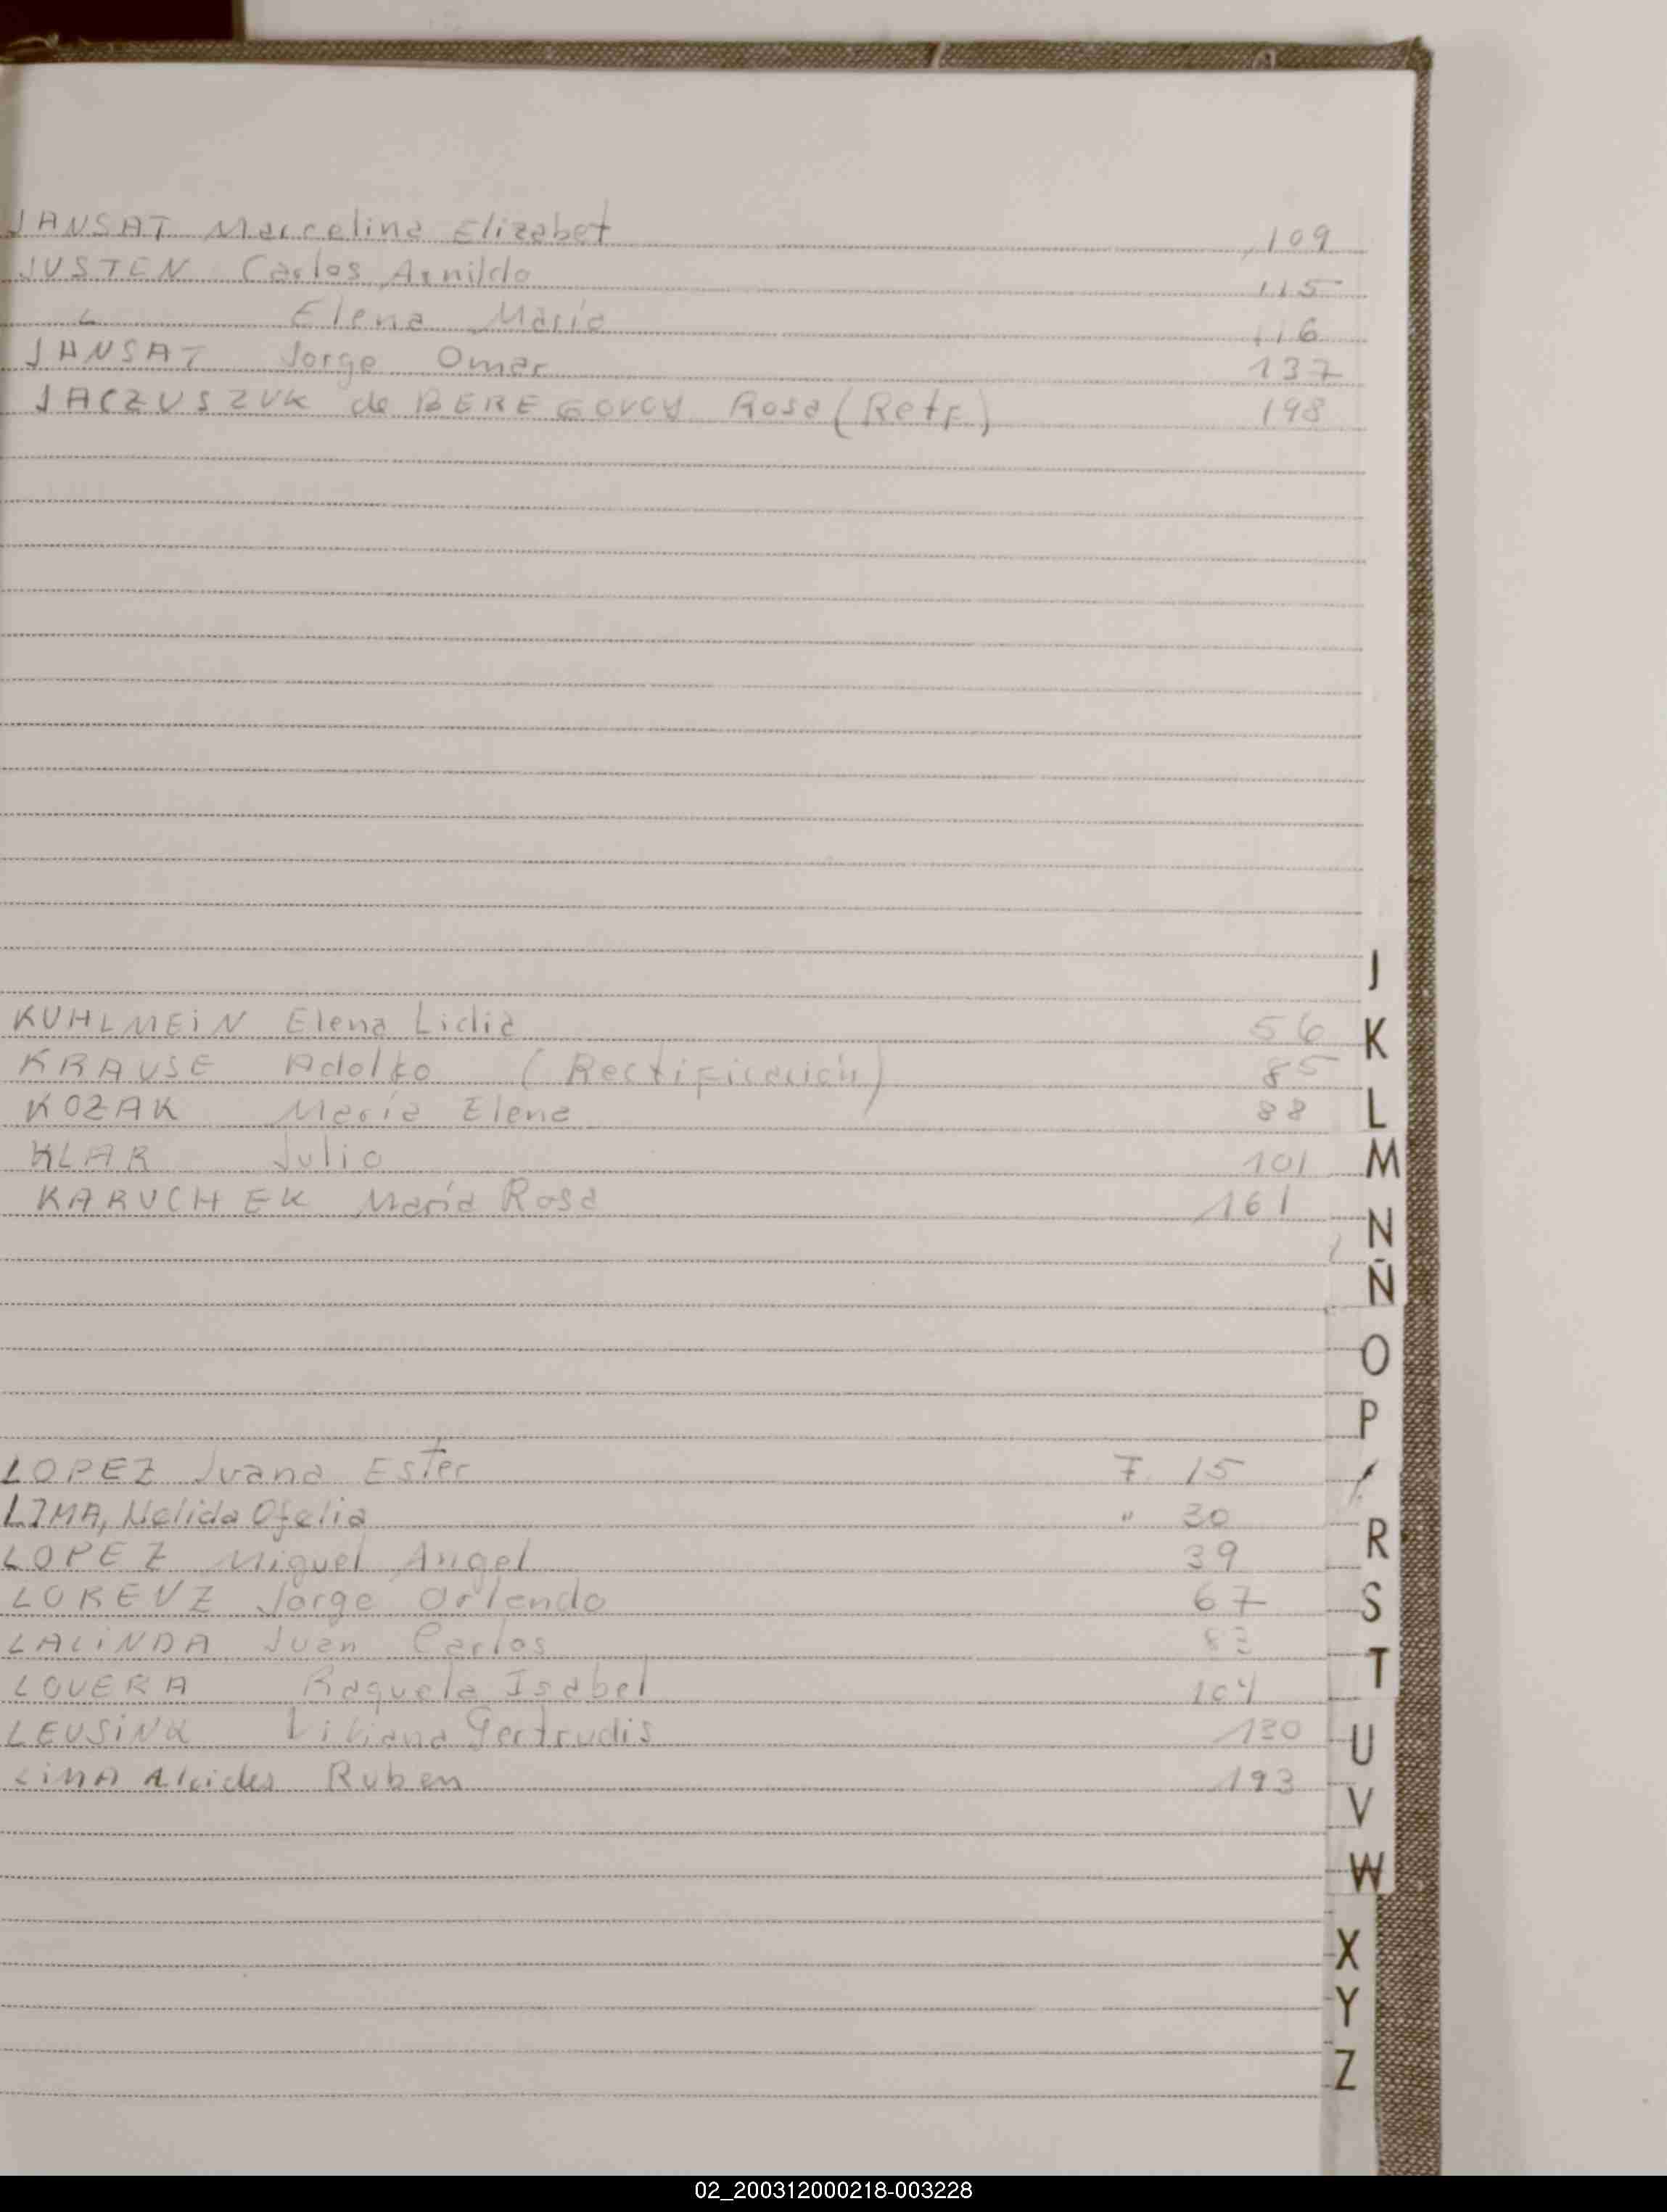 JANSAT Marcelina Elizabet 109
JUSTEN Carlos Arnildo 115
" Elena María 116
JANSAT Jorge Omar 137
JACZUSZUK de BEREGOVOY Rosa (Retf.) 198
J
KUHLMEiN Elena Lidia 56
K
KRAUSE Adolfo (Rectificación) 85
KOZAK María Elena 88
L
KLAR Julio 101
M
KARUCHEK María Rosa 161
N
Ñ
O
P
LOPEZ Juana Ester F. 15
LIMA, Nelida Ofelia " 30
LOPEZ Miguel Angel 39
R
LORENZ Jorge Orlando 67
S
LALiNDA Juan Carlos 83
T
LOVERA Raquela Isabel 104
LEUSiNK Liliana Gertrudis 130
U
LiMA Alcides Ruben 193
V
W
X
Y
Z
02_200312000218-003228